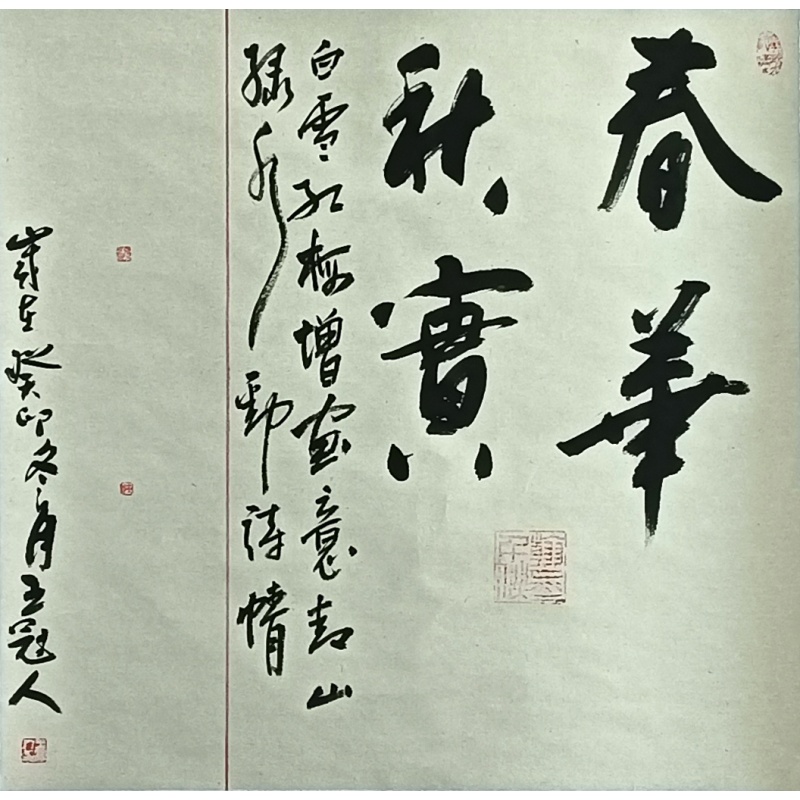 春華
秋實
白雲紅樹增畫意青山
綠水動詩情
歲在癸卯冬月王冠人